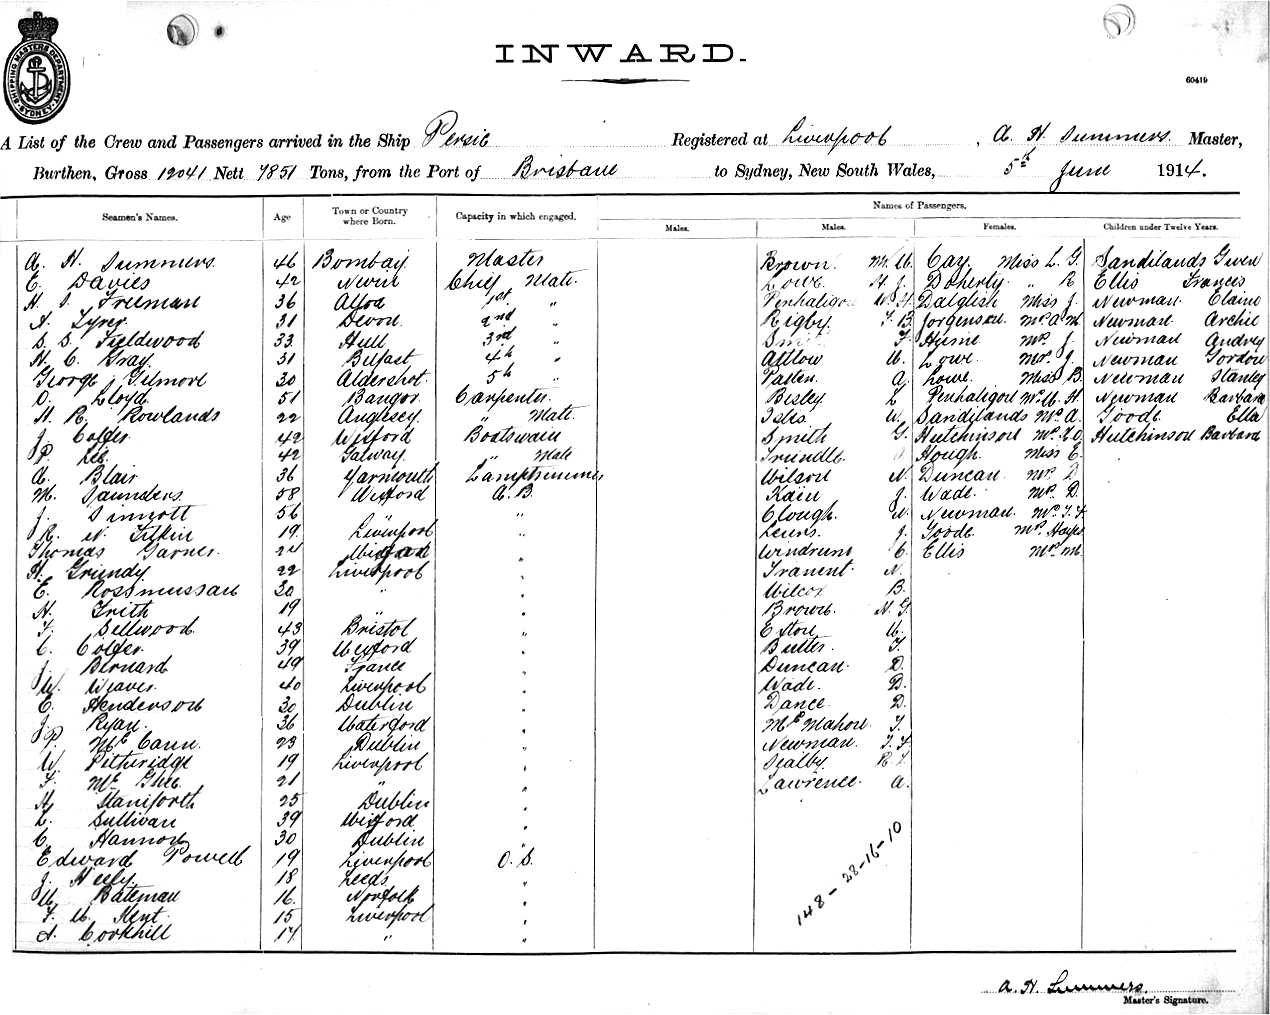 SHIPPING MASTERS DEPARTMENT SYDNEY
INWARD.
60419
A List of the Crew and Passengers arrived in the Ship Persic Registered at Liverpool, A. H. Summers Master,
Burthen, Gross 12041 Nett 7851 Tons, from the Port of Brisbane to Sydney, New South Wales, 5th June 1914.
Names of Passengers.
Seamen's Names. Age Town or Country where Born. Capacity in which engaged. Males. Males. Females. Children under Twelve Years.
A. H. Summers 46 Bombay Master Brown Cay Miss L. G. Sandilands Gwen
E. Davies 42 Chief Mate Lowe H. J. Doherty " R Ellis Frances
H. Freeman 36 1st " W. H. Dalglish Miss J. Newman Elaine
A. 31 Devon 2nd " Rigby F. B. Jorgenson Newman Archie
S. S. Fieldwood 33 Hull 3rd " Smith F Hume Mrs J. Newman Audrey
H. C. Gray 31 Belfast 4th " Lowe Mrs J. Newman Gordon
George Gilmore 30 Aldershot 5th " A. Lowe Miss B. Newman Stanley
O. Lloyd 51 Bangor Carpenter Besley L Penhaligon Mrs W. H Newman Barbara
H. R. Rowlands 22 Anglesey " Mate W. Sandilands Mrs A. Goode Ella
J. 42 Wexford Boatswain Smith G. Hutchinson Hutchinson Barbara
P. 42 Galway " Mate Trundle Hough Miss E.
A. Blair 36 Yarmouth Lamptrimmer Wilson N. Duncan Mrs D
M. Saunders 58 Wexford A.B. J. Wade Mrs D.
J. Sinnott 56 " " Clough W. Newman Mrs
R. W. 19 Liverpool " J. Goode Mrs
Thomas Garner 24 " Windrum C. Ellis Mrs M.
H. Grundy 22 Liverpool " Tranent N.
E. Rossmussan 30 " " Wilcox B.
H. Frith 19 " " Brown H. G.
F. Sellwood 43 Bristol "
C. 39 Wexford " Butler F.
J. Bernard 49 France " Duncan D.
W. Weaver 40 Liverpool " Wade D.
E. Henderson 30 Dublin " Dance D.
J. Ryan 36 Waterford " McMahon T.
P. McCann 23 Dublin " Newman
W. Petheridge 19 Liverpool " Sealby
F. McGhee 21 " " Lawrence A.
H. Staniforth 25 Dublin "
L. Sullivan 39 Wexford "
C. Hannon 30 Dublin "
Edward Powell 19 Liverpool O.S.
J. Neely 18 Leeds "
W. Bateman 16 Norfolk "
F. W. Kent 15 Liverpool "
Corkhill 17 " "
148 - 28-16-10
A. H. Summers
Master's Signature.